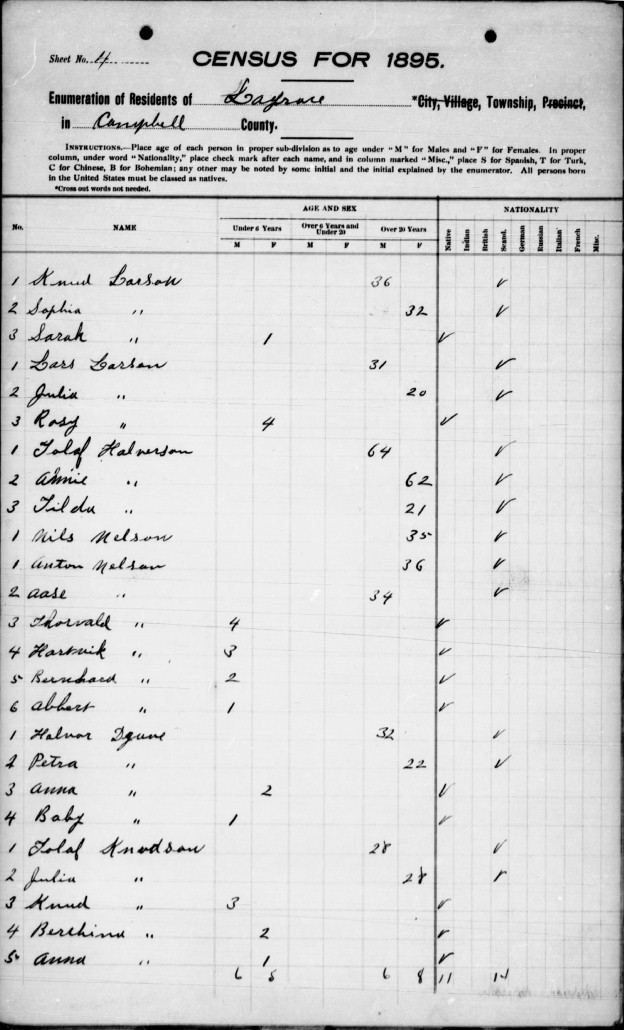 Sheet No. 4
CENSUS FOR 1895.
Enumeration of Residents of Lagrace *City, Village, Township, Precinct,
in Campbell County.
INSTRUCTIONS.—Place age of each person in proper sub-division as to age under "M" for Males and "F" for Females. In proper
column, under word "Nationality," place check mark after each name, and in column marked "Misc.," place S for Spanish, T for Turk,
C for Chinese, B for Bohemian; any other may be noted by some initial and the initial explained by the enumerator. All persons born
in the United States must be classed as natives.
*Cross out words not needed.
AGE AND SEX NATIONALITY
No. NAME Under 6 Years Over 6 Years and Under 20 Over 20 Years Native Indian British Scand. German Russian Italian French Misc.
M F M F M F
1 Knud Larson 36 ✓
2 Sophia " 32 ✓
3 Sarah " 1 ✓
1 Lars Larson 31 ✓
2 Julia " 20 ✓
3 Rosy " 4 ✓
1 Tolaf Halverson 64 ✓
2 Annie " 62 ✓
3 Tilda " 21 ✓
1 Nils Nelson 35 ✓
1 Anton Nelson 36 ✓
2 Aase " 34 ✓
3 Thorvald " 4 ✓
4 Hartvik " 3 ✓
5 Bernhard " 2 ✓
6 Abbert " 1 ✓
1 Halvor 32 ✓
2 Petra " 22 ✓
3 Anna " 2 ✓
4 Baby " 1 ✓
1 Tolaf Knudson 28 ✓
2 Julia " 28 ✓
3 Knud " 3 ✓
4 Berthina " 2 ✓
5 Anna " 1 ✓
6 5 6 8 11 14